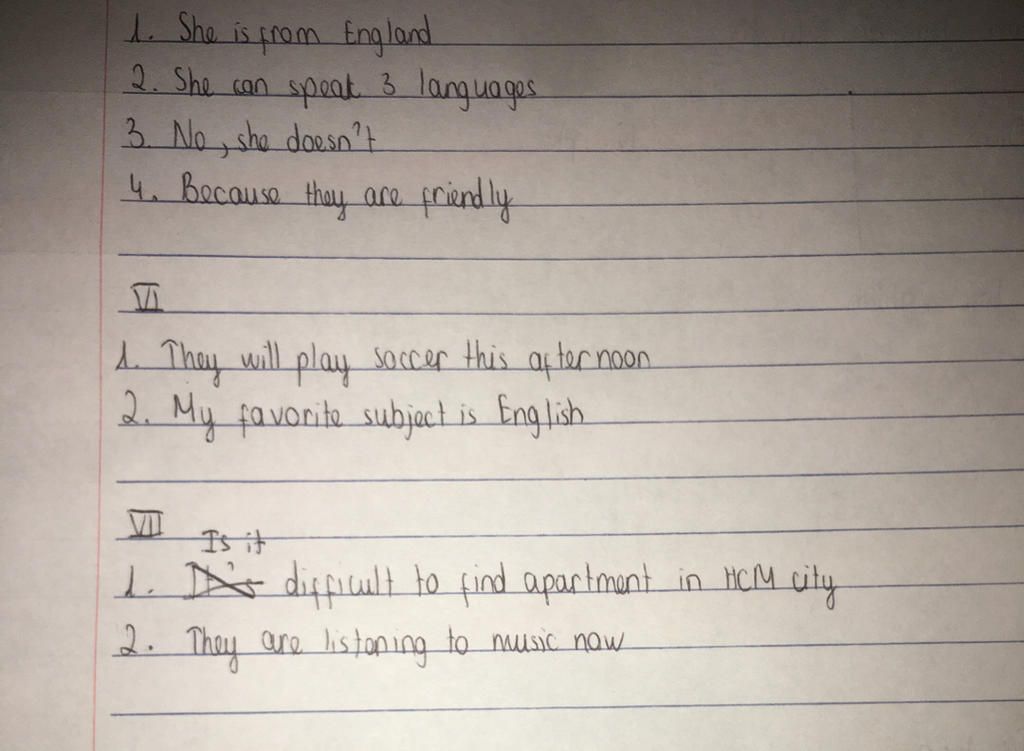 1. She is from England
2. She can speak 3 languages
3. No, she doesn't
4. Because they are friendly
VI
1. They will play soccer this afternoon
2. My favorite subject is English
VII
Is it
1. It's difficult to find apartment in HCM city
2. They are listening to music now